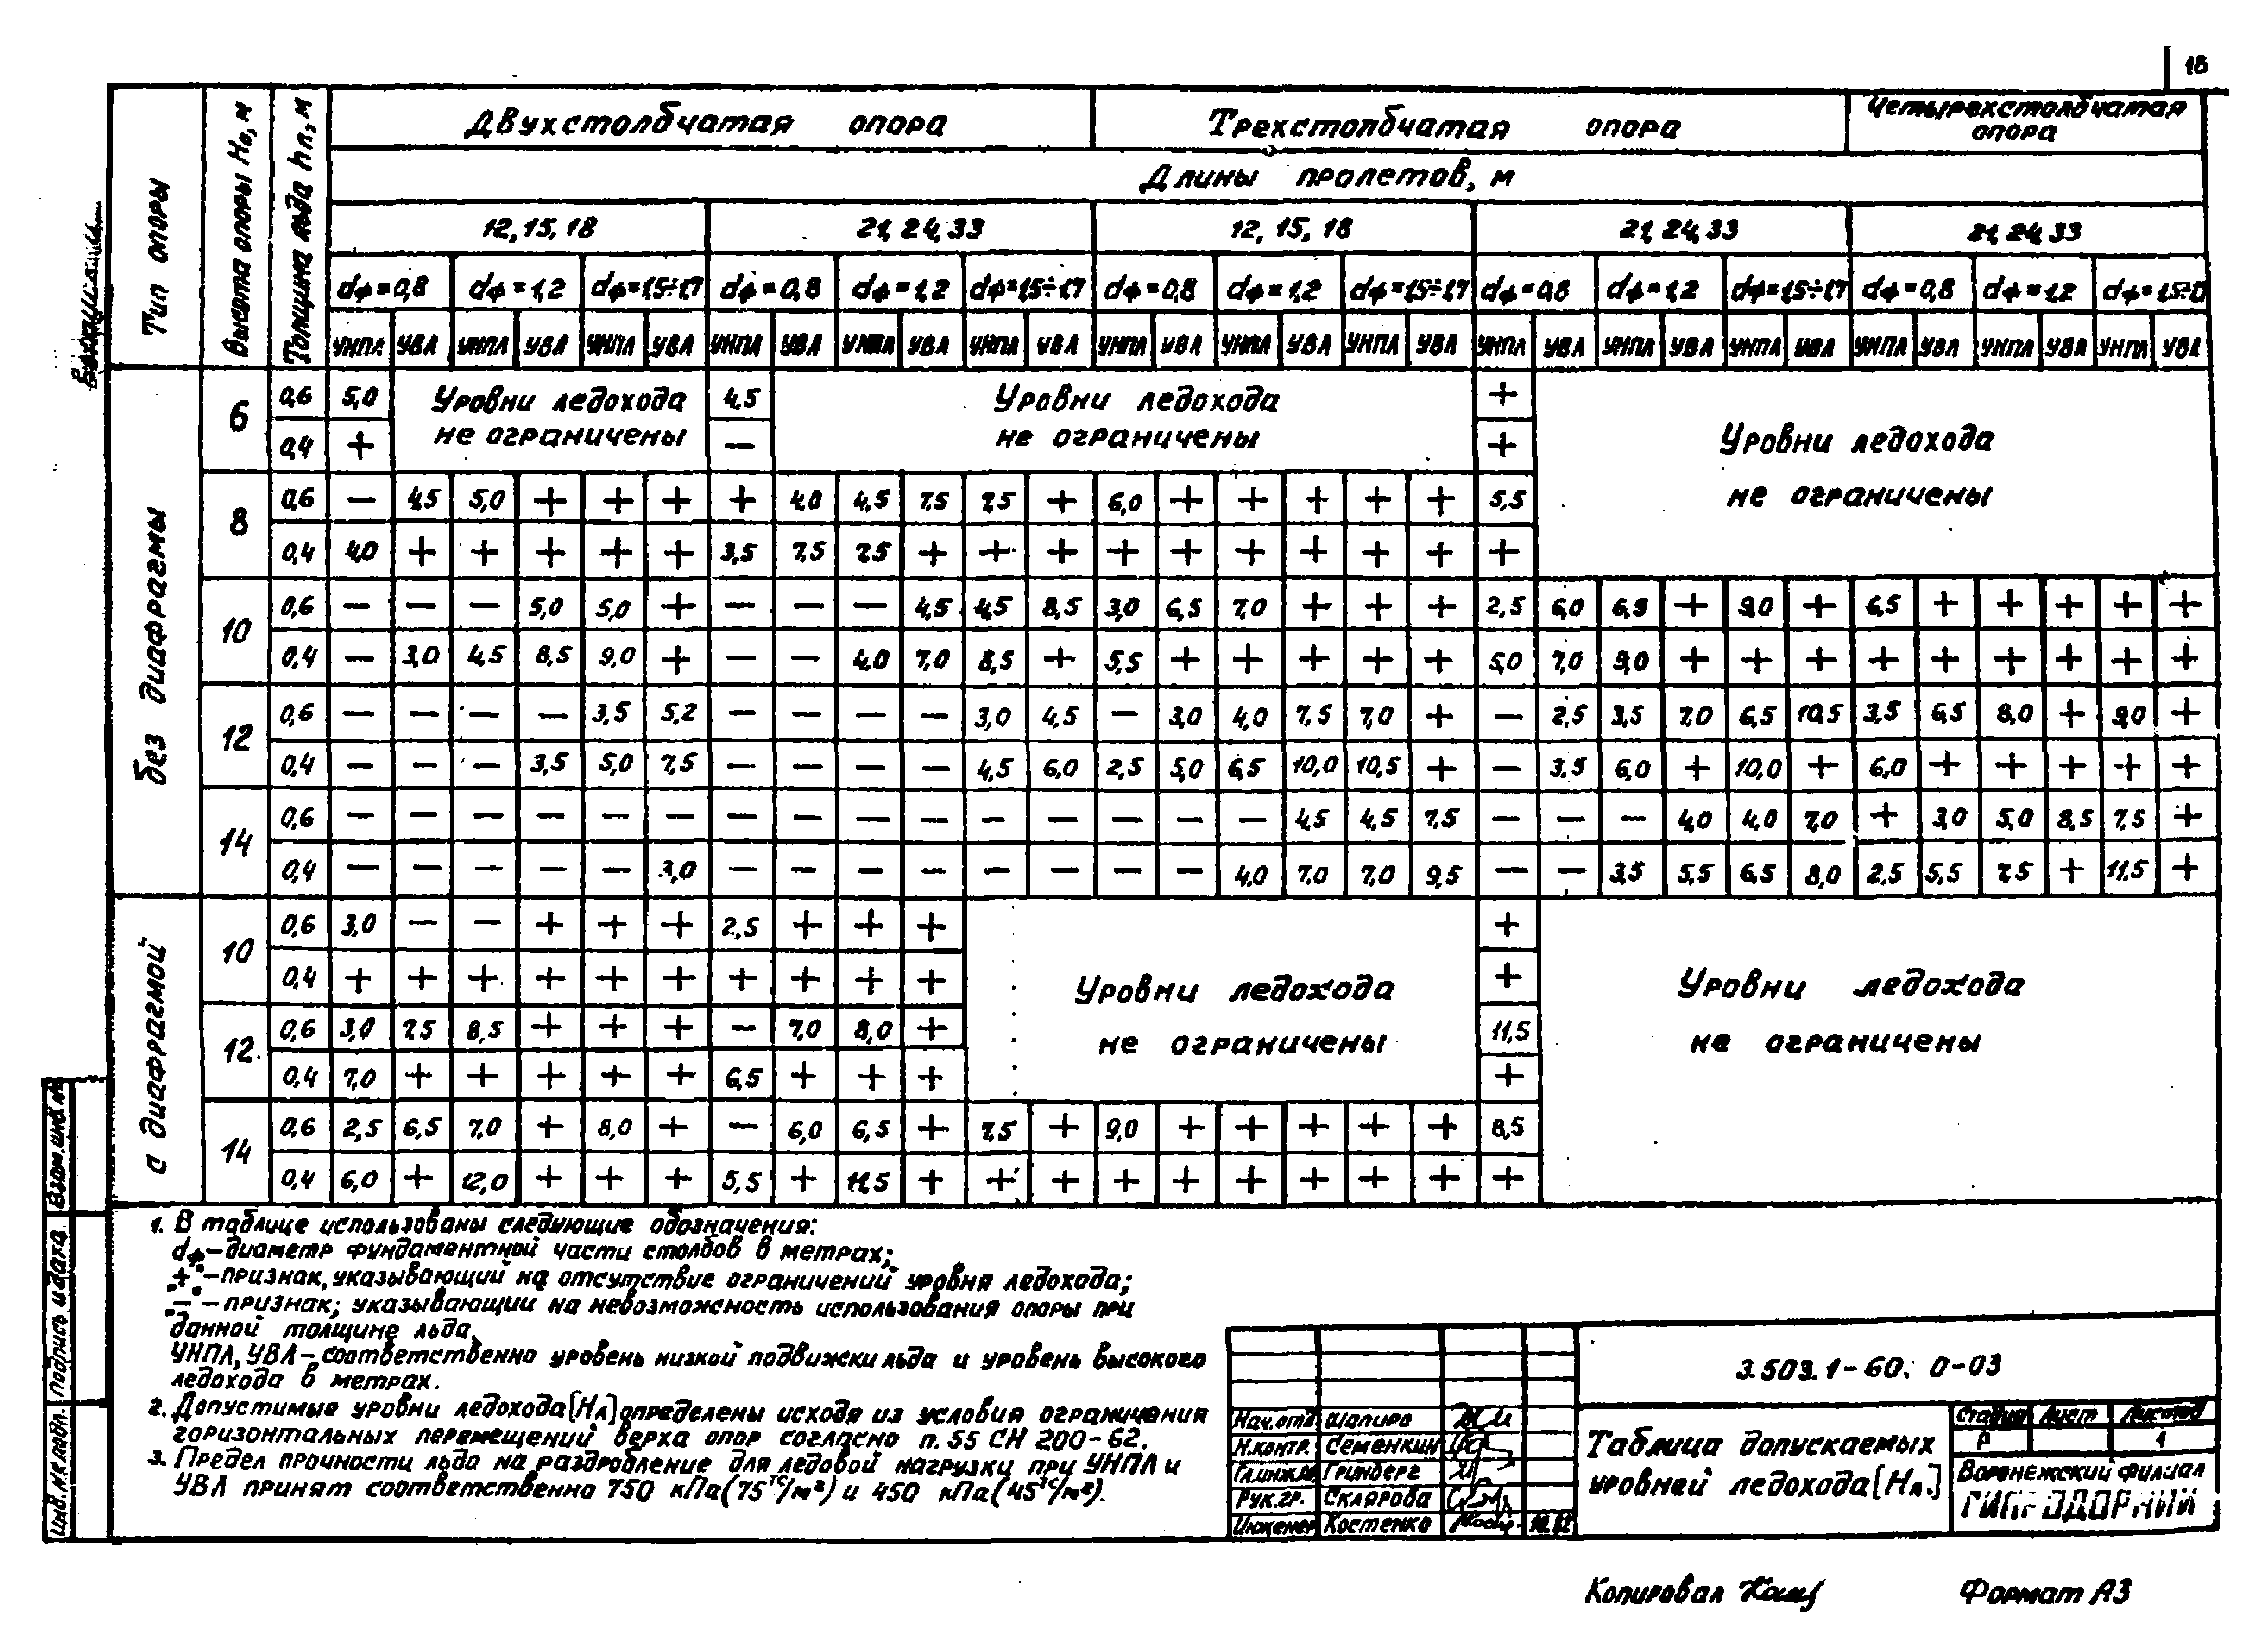 18
Тип опоры
Высота опоры Но, м
Толщина льда hл, м
Двухстолбчатая опора
Трехстолбчатая опора
Четырехстолбчатая опора
Длины пролетов, м
12, 15, 18
21, 24, 33
12, 15, 18
21, 24, 33
21, 24, 33
dф=0,8 dф=1,2 dф=1,5÷1,7 dф=0,8 dф=1,2 dф=1,5÷1,7 dф=0,8 dф=1,2 dф=1,5÷1,7 dф=0,8 dф=1,2 dф=1,5÷1,7 dф=0,8 dф=1,2
УНПЛ УВЛ УНПЛ УВЛ УНПЛ УВЛ УНПЛ УВЛ УНПЛ УВЛ УНПЛ УВЛ УНПЛ УВЛ УНПЛ УВЛ УНПЛ УВЛ УНПЛ УВЛ УНПЛ УВЛ УНПЛ УВЛ УНПЛ УВЛ УНПЛ УВЛ УНПЛ УВЛ
без диафрагмы
6
0,6 5,0 4,5 +
0,4 + – +
Уровни ледохода
не ограничены
Уровни ледохода
не ограничены
Уровни ледохода
не ограничены
8
0,6 – 4,5 5,0 + + + + 4,0 4,5 7,5 7,5 + 6,0 + + + + + 5,5
0,4 4,0 + + + + + 3,5 7,5 7,5 + + + + + + + + + +
10
0,6 – – – 5,0 5,0 + – – – 4,5 4,5 8,5 3,0 6,5 7,0 + + + 2,5 6,0 6,5 + 9,0 + 6,5 + + + + +
0,4 – 3,0 4,5 8,5 9,0 + – – 4,0 7,0 8,5 + 5,5 + + + + + 5,0 7,0 9,0 + + + + + + + + +
12
0,6 – – – – 3,5 5,2 – – – – 3,0 4,5 – 3,0 4,0 7,5 7,0 + – 2,5 3,5 7,0 6,5 10,5 3,5 6,5 8,0 + 9,0 +
0,4 – – – 3,5 5,0 7,5 – – – – 4,5 6,0 2,5 5,0 6,5 10,0 10,5 + – 3,5 6,0 + 10,0 + 6,0 + + + + +
14
0,6 – – – – – – – – – – – – – – – 4,5 4,5 7,5 – – – 4,0 4,0 7,0 + 3,0 5,0 8,5 7,5 +
0,4 – – – – – 3,0 – – – – – – – – 4,0 7,0 7,0 9,5 – – 3,5 5,5 6,5 8,0 2,5 5,5 7,5 + 11,5 +
с диафрагмой
10
0,6 3,0 – – + + + 2,5 + + + +
0,4 + + + + + + + + + + +
12
0,6 3,0 7,5 8,5 + + + – 7,0 8,0 + 11,5
0,4 7,0 + + + + + 6,5 + + + +
Уровни ледохода
не ограничены
Уровни ледохода
не ограничены
14
0,6 2,5 6,5 7,0 + 8,0 + – 6,0 6,5 + 7,5 + 9,0 + + + + + 8,5
0,4 6,0 + 12,0 + + + 5,5 + 11,5 + + + + + + + + + +
1. В таблице использованы следующие обозначения:
dф–диаметр фундаментной части столбов в метрах;
„+"–признак, указывающий на отсутствие ограничений уровня ледохода;
„–"–признак, указывающий на невозможность использования опоры при
данной толщине льда.
УНПЛ, УВЛ–соответственно уровень низкой подвижки льда и уровень высокого
ледохода в метрах.
2. Допустимые уровни ледохода [Нл] определены исходя из условия ограничения
горизонтальных перемещений верха опор согласно п. 55 СН 200-62.
3. Предел прочности льда на раздробление для ледовой нагрузки при УНПЛ и
УВЛ принят соответственно 750 кПа (75тс/м²) и 450 кПа (45тс/м²).
Взам. инв. №
Подпись и дата
Инв. № подл.
3.503.1-60. 0-03
Нач.отд. Шапиро
Н.контр. Семенкин
Гл.инж. Гринберг
Рук.гр. Склярова
Инженер Костенко
Таблица допускаемых
уровней ледохода [Нл.]
Стадия Лист Листов
Р 1
Воронежский филиал
ГИПРОДОРНИИ
Копировал
Формат А3